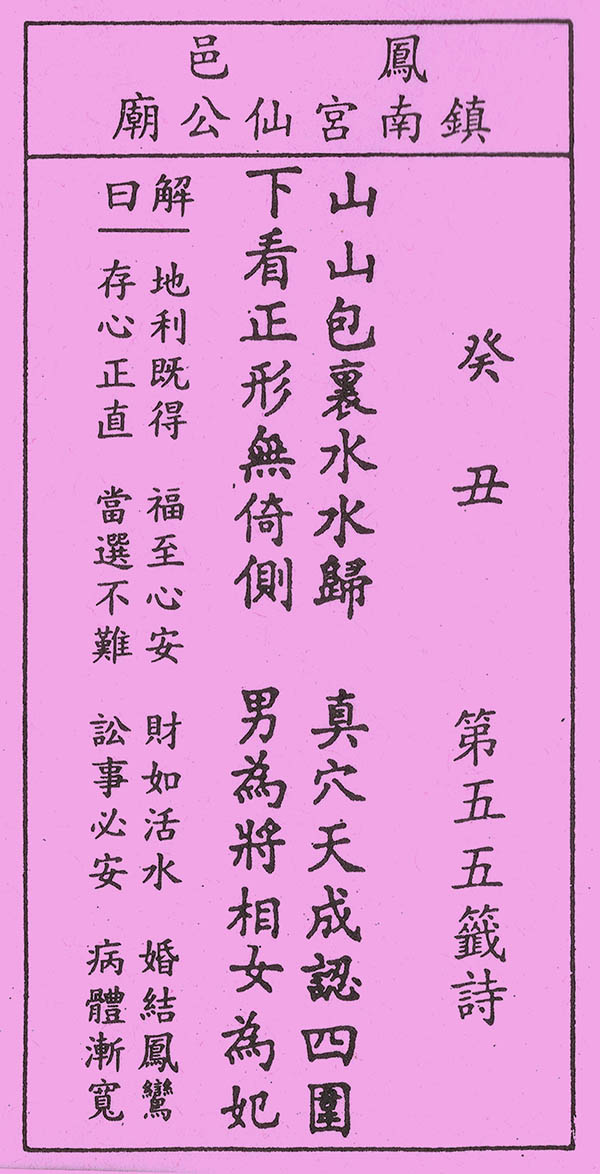 鳳邑
鎮南宮仙公廟
癸丑 第五五籤詩
山山包裏水水歸 真穴天成認四圍
下看正形無倚側 男為將相女為妃
解曰
地利既得 福至心安 財如活水 婚結鳳鸞
存心正直 當選不難 訟事必安 病體漸寬